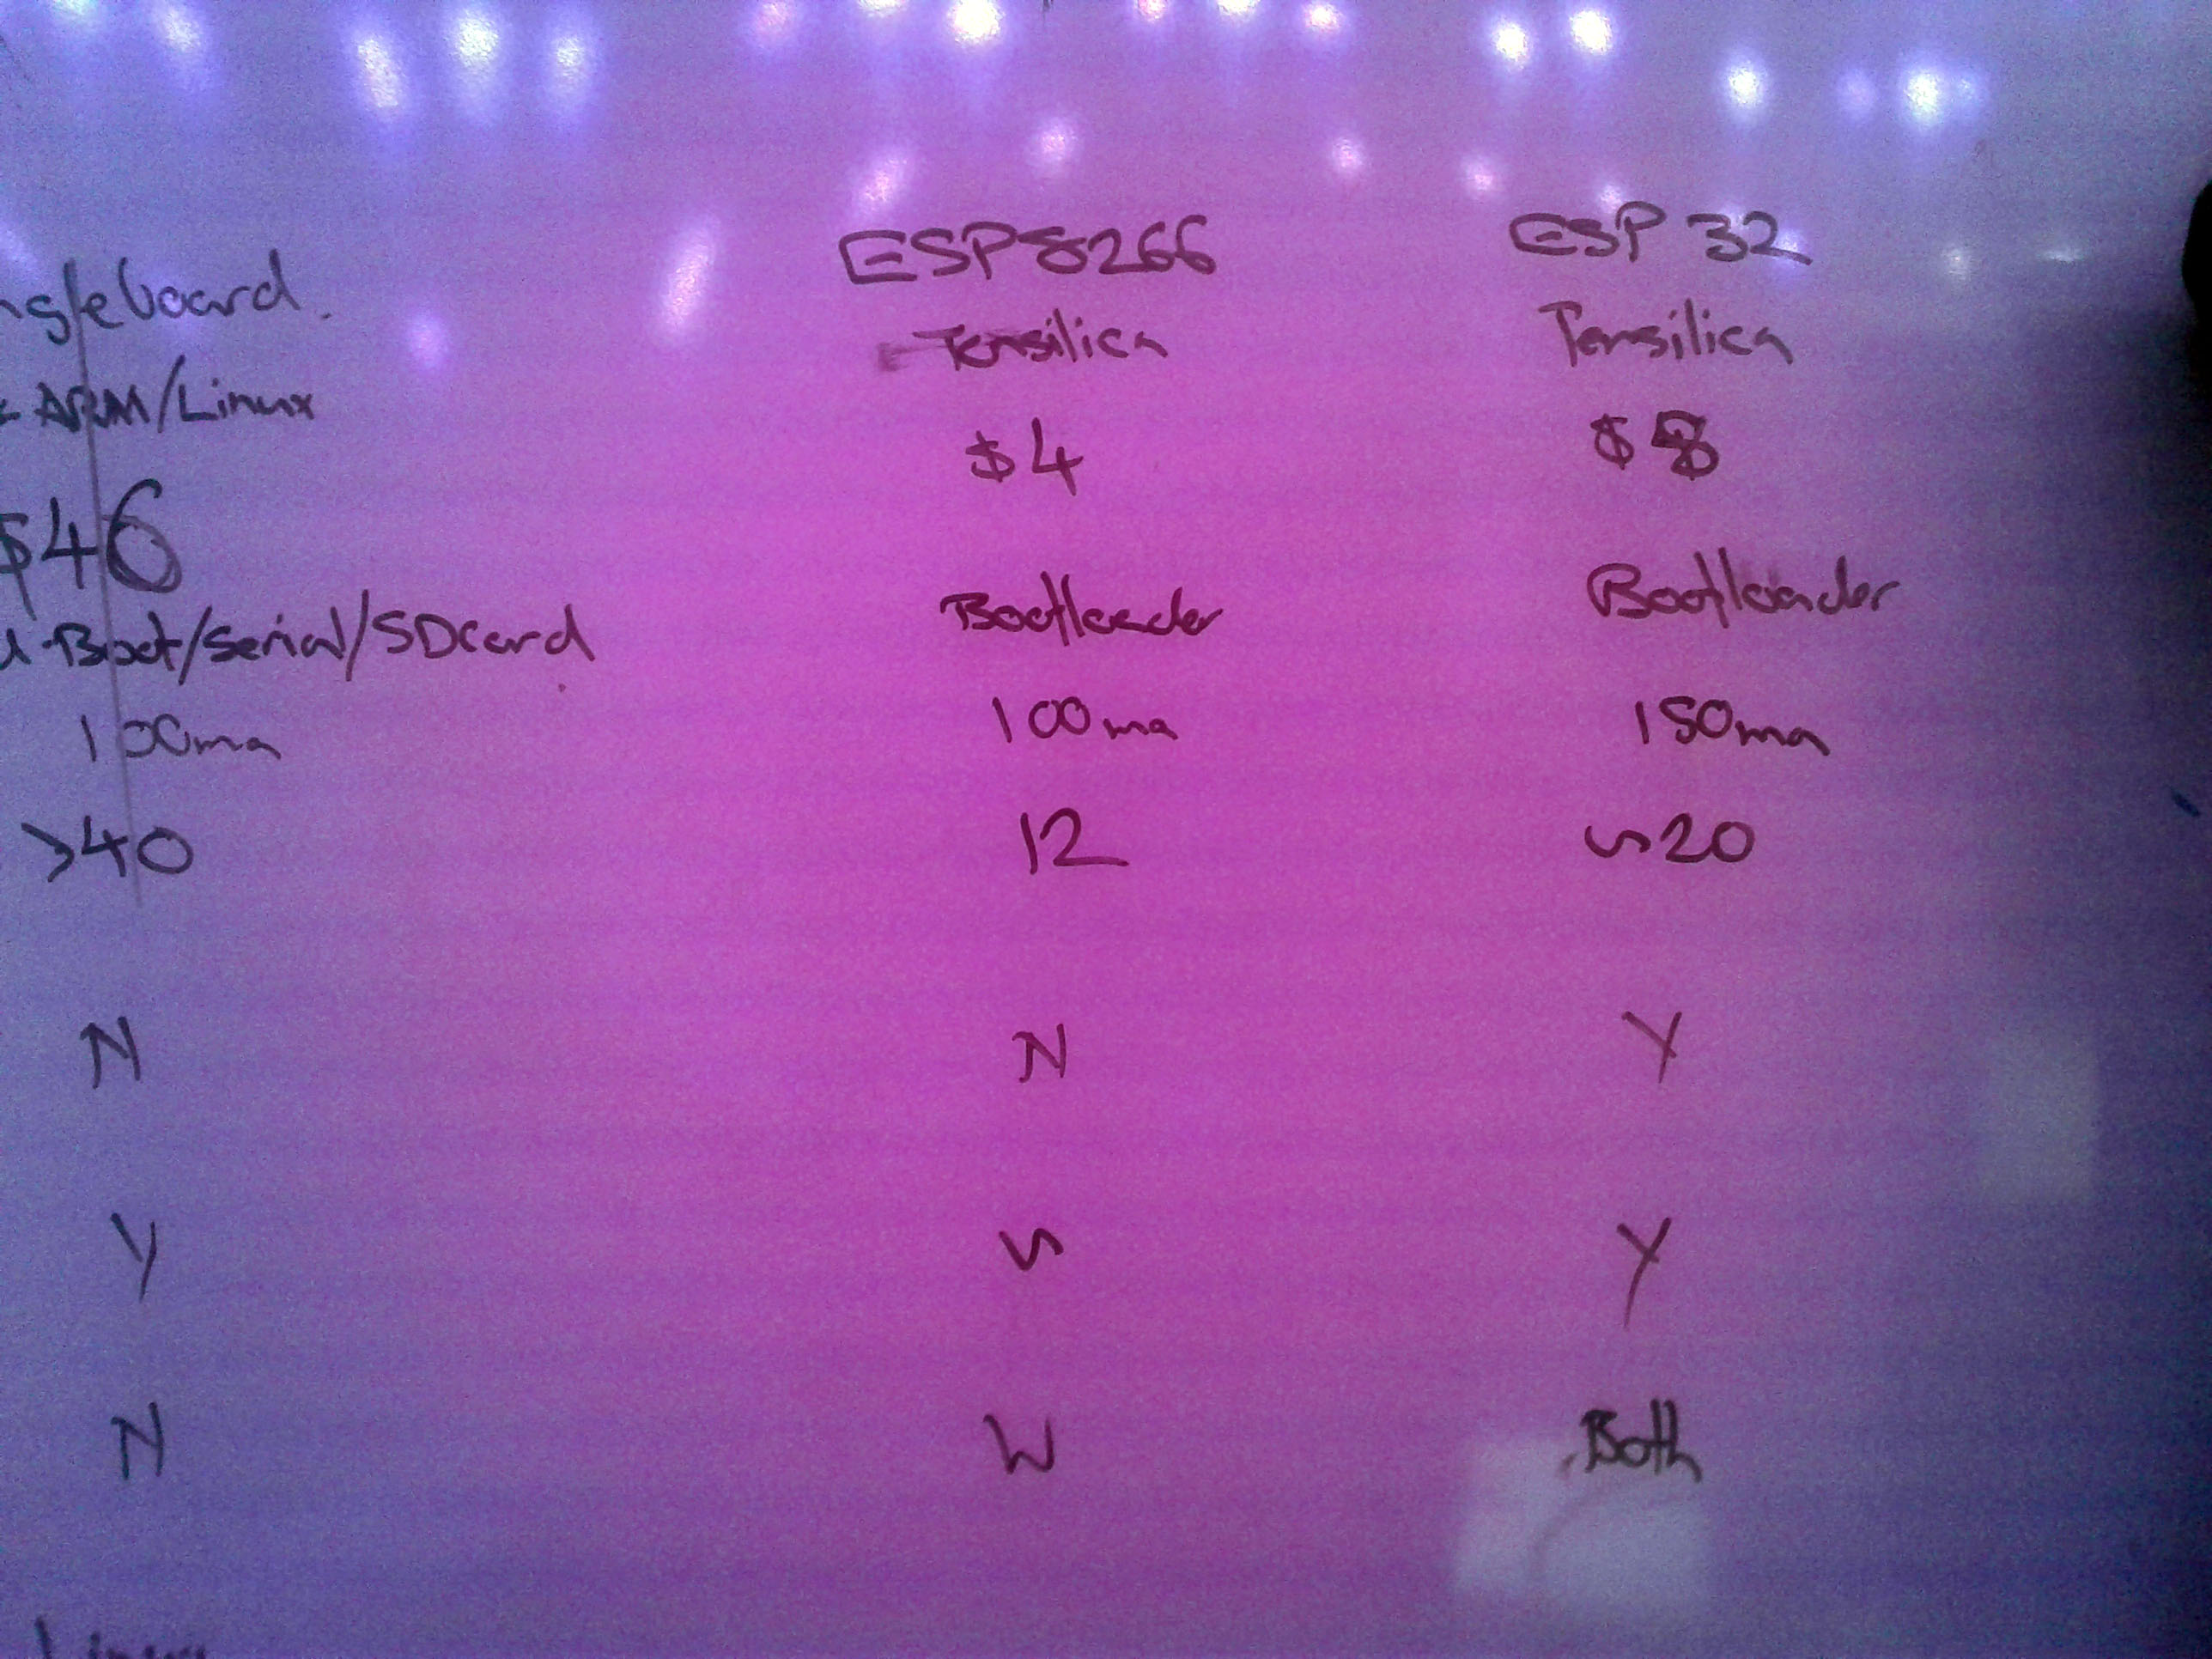 ngleboard. ESP8266 ESP 32
ARM/Linux Tensilica Tensilica
$46 $4 $8
u-Boot/serial/SDcard Bootloader Bootloader
100ma 100ma 150ma
>40 12 ~20
N N Y
Y ~ Y
N W Both